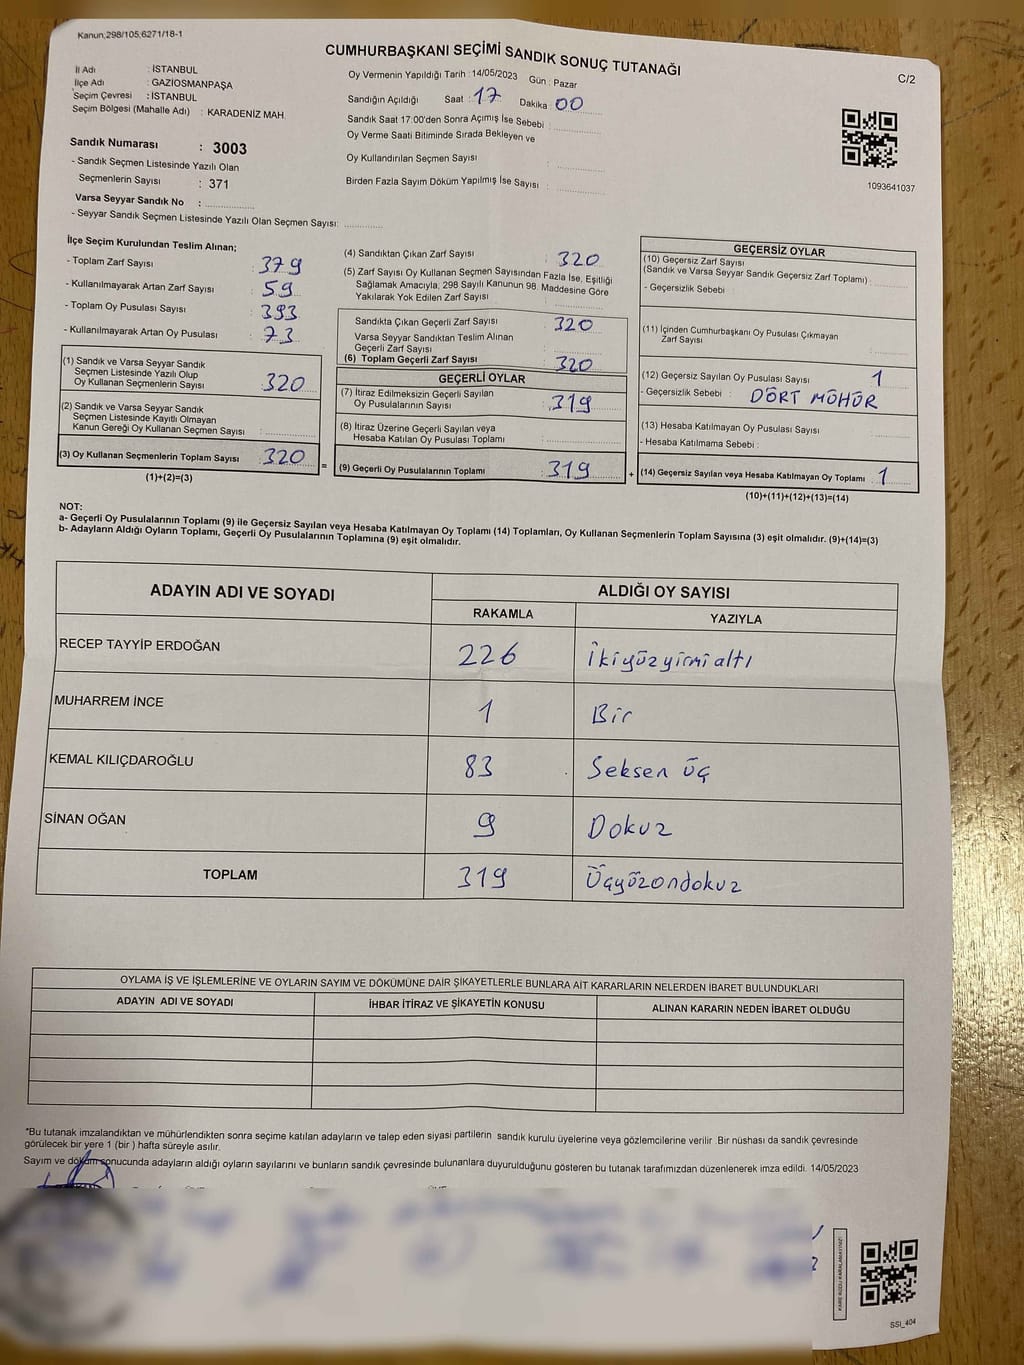 Kanun;298/105;6271/18-1
CUMHURBAŞKANI SEÇİMİ SANDIK SONUÇ TUTANAĞI
C/2
İl Adı : İSTANBUL
İlçe Adı : GAZİOSMANPAŞA
Seçim Çevresi : İSTANBUL
Seçim Bölgesi (Mahalle Adı) : KARADENİZ MAH.
Sandık Numarası : 3003
- Sandık Seçmen Listesinde Yazılı Olan
Seçmenlerin Sayısı : 371
Varsa Seyyar Sandık No :
- Seyyar Sandık Seçmen Listesinde Yazılı Olan Seçmen Sayısı:
Oy Vermenin Yapıldığı Tarih : 14/05/2023 Gün : Pazar
Sandığın Açıldığı Saat : 17 Dakika : 00
Sandık Saat 17:00'den Sonra Açımış İse Sebebi :
Oy Verme Saati Bitiminde Sırada Bekleyen ve
Oy Kullandırılan Seçmen Sayısı :
Birden Fazla Sayım Döküm Yapılmış İse Sayısı :
1093641037
İlçe Seçim Kurulundan Teslim Alınan;
- Toplam Zarf Sayısı : 379
- Kullanılmayarak Artan Zarf Sayısı : 59
- Toplam Oy Pusulası Sayısı : 393
- Kullanılmayarak Artan Oy Pusulası : 73
(1) Sandık ve Varsa Seyyar Sandık
Seçmen Listesinde Yazılı Olup
Oy Kullanan Seçmenlerin Sayısı : 320
(2) Sandık ve Varsa Seyyar Sandık
Seçmen Listesinde Kayıtlı Olmayan
Kanun Gereği Oy Kullanan Seçmen Sayısı :
(3) Oy Kullanan Seçmenlerin Toplam Sayısı : 320
(1)+(2)=(3)
=
(4) Sandıktan Çıkan Zarf Sayısı : 320
(5) Zarf Sayısı Oy Kullanan Seçmen Sayısından Fazla İse, Eşitliği
Sağlamak Amacıyla, 298 Sayılı Kanunun 98. Maddesine Göre
Yakılarak Yok Edilen Zarf Sayısı :
Sandıkta Çıkan Geçerli Zarf Sayısı : 320
Varsa Seyyar Sandıktan Teslim Alınan
Geçerli Zarf Sayısı :
(6) Toplam Geçerli Zarf Sayısı : 320
GEÇERLİ OYLAR
(7) İtiraz Edilmeksizin Geçerli Sayılan
Oy Pusulalarının Sayısı : 319
(8) İtiraz Üzerine Geçerli Sayılan veya
Hesaba Katılan Oy Pusulası Toplamı :
(9) Geçerli Oy Pusulalarının Toplamı : 319
+
GEÇERSİZ OYLAR
(10) Geçersiz Zarf Sayısı
(Sandık ve Varsa Seyyar Sandık Geçersiz Zarf Toplamı) :
- Geçersizlik Sebebi :
(11) İçinden Cumhurbaşkanı Oy Pusulası Çıkmayan
Zarf Sayısı :
(12) Geçersiz Sayılan Oy Pusulası Sayısı : 1
- Geçersizlik Sebebi : DÖRT MÜHÜR
(13) Hesaba Katılmayan Oy Pusulası Sayısı :
- Hesaba Katılmama Sebebi :
(14) Geçersiz Sayılan veya Hesaba Katılmayan Oy Toplamı : 1
(10)+(11)+(12)+(13)=(14)
NOT:
a- Geçerli Oy Pusulalarının Toplamı (9) ile Geçersiz Sayılan veya Hesaba Katılmayan Oy Toplamı (14) Toplamları, Oy Kullanan Seçmenlerin Toplam Sayısına (3) eşit olmalıdır. (9)+(14)=(3)
b- Adayların Aldığı Oyların Toplamı, Geçerli Oy Pusulalarının Toplamına (9) eşit olmalıdır.
ADAYIN ADI VE SOYADI ALDIĞI OY SAYISI
RAKAMLA YAZIYLA
RECEP TAYYİP ERDOĞAN 226 İkiyüzyirmialtı
MUHARREM İNCE 1 Bir
KEMAL KILIÇDAROĞLU 83 Seksen üç
SİNAN OĞAN 9 Dokuz
TOPLAM 319 Üçyüzondokuz
OYLAMA İŞ VE İŞLEMLERİNE VE OYLARIN SAYIM VE DÖKÜMÜNE DAİR ŞİKAYETLERLE BUNLARA AİT KARARLARIN NELERDEN İBARET BULUNDUKLARI
ADAYIN ADI VE SOYADI İHBAR İTİRAZ VE ŞİKAYETİN KONUSU ALINAN KARARIN NEDEN İBARET OLDUĞU
*Bu tutanak imzalandıktan ve mühürlendikten sonra seçime katılan adayların ve talep eden siyasi partilerin sandık kurulu üyelerine veya gözlemcilerine verilir. Bir nüshası da sandık çevresinde
görülecek bir yere 1 (bir ) hafta süreyle asılır.
Sayım ve döküm sonucunda adayların aldığı oyların sayılarını ve bunların sandık çevresinde bulunanlara duyurulduğunu gösteren bu tutanak tarafımızdan düzenlenerek imza edildi. 14/05/2023
KARE KODU KARALAMAYINIZ!
SSI_404